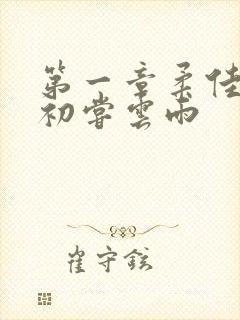 第一章柔佳
初尝雲雨
崔守鉉